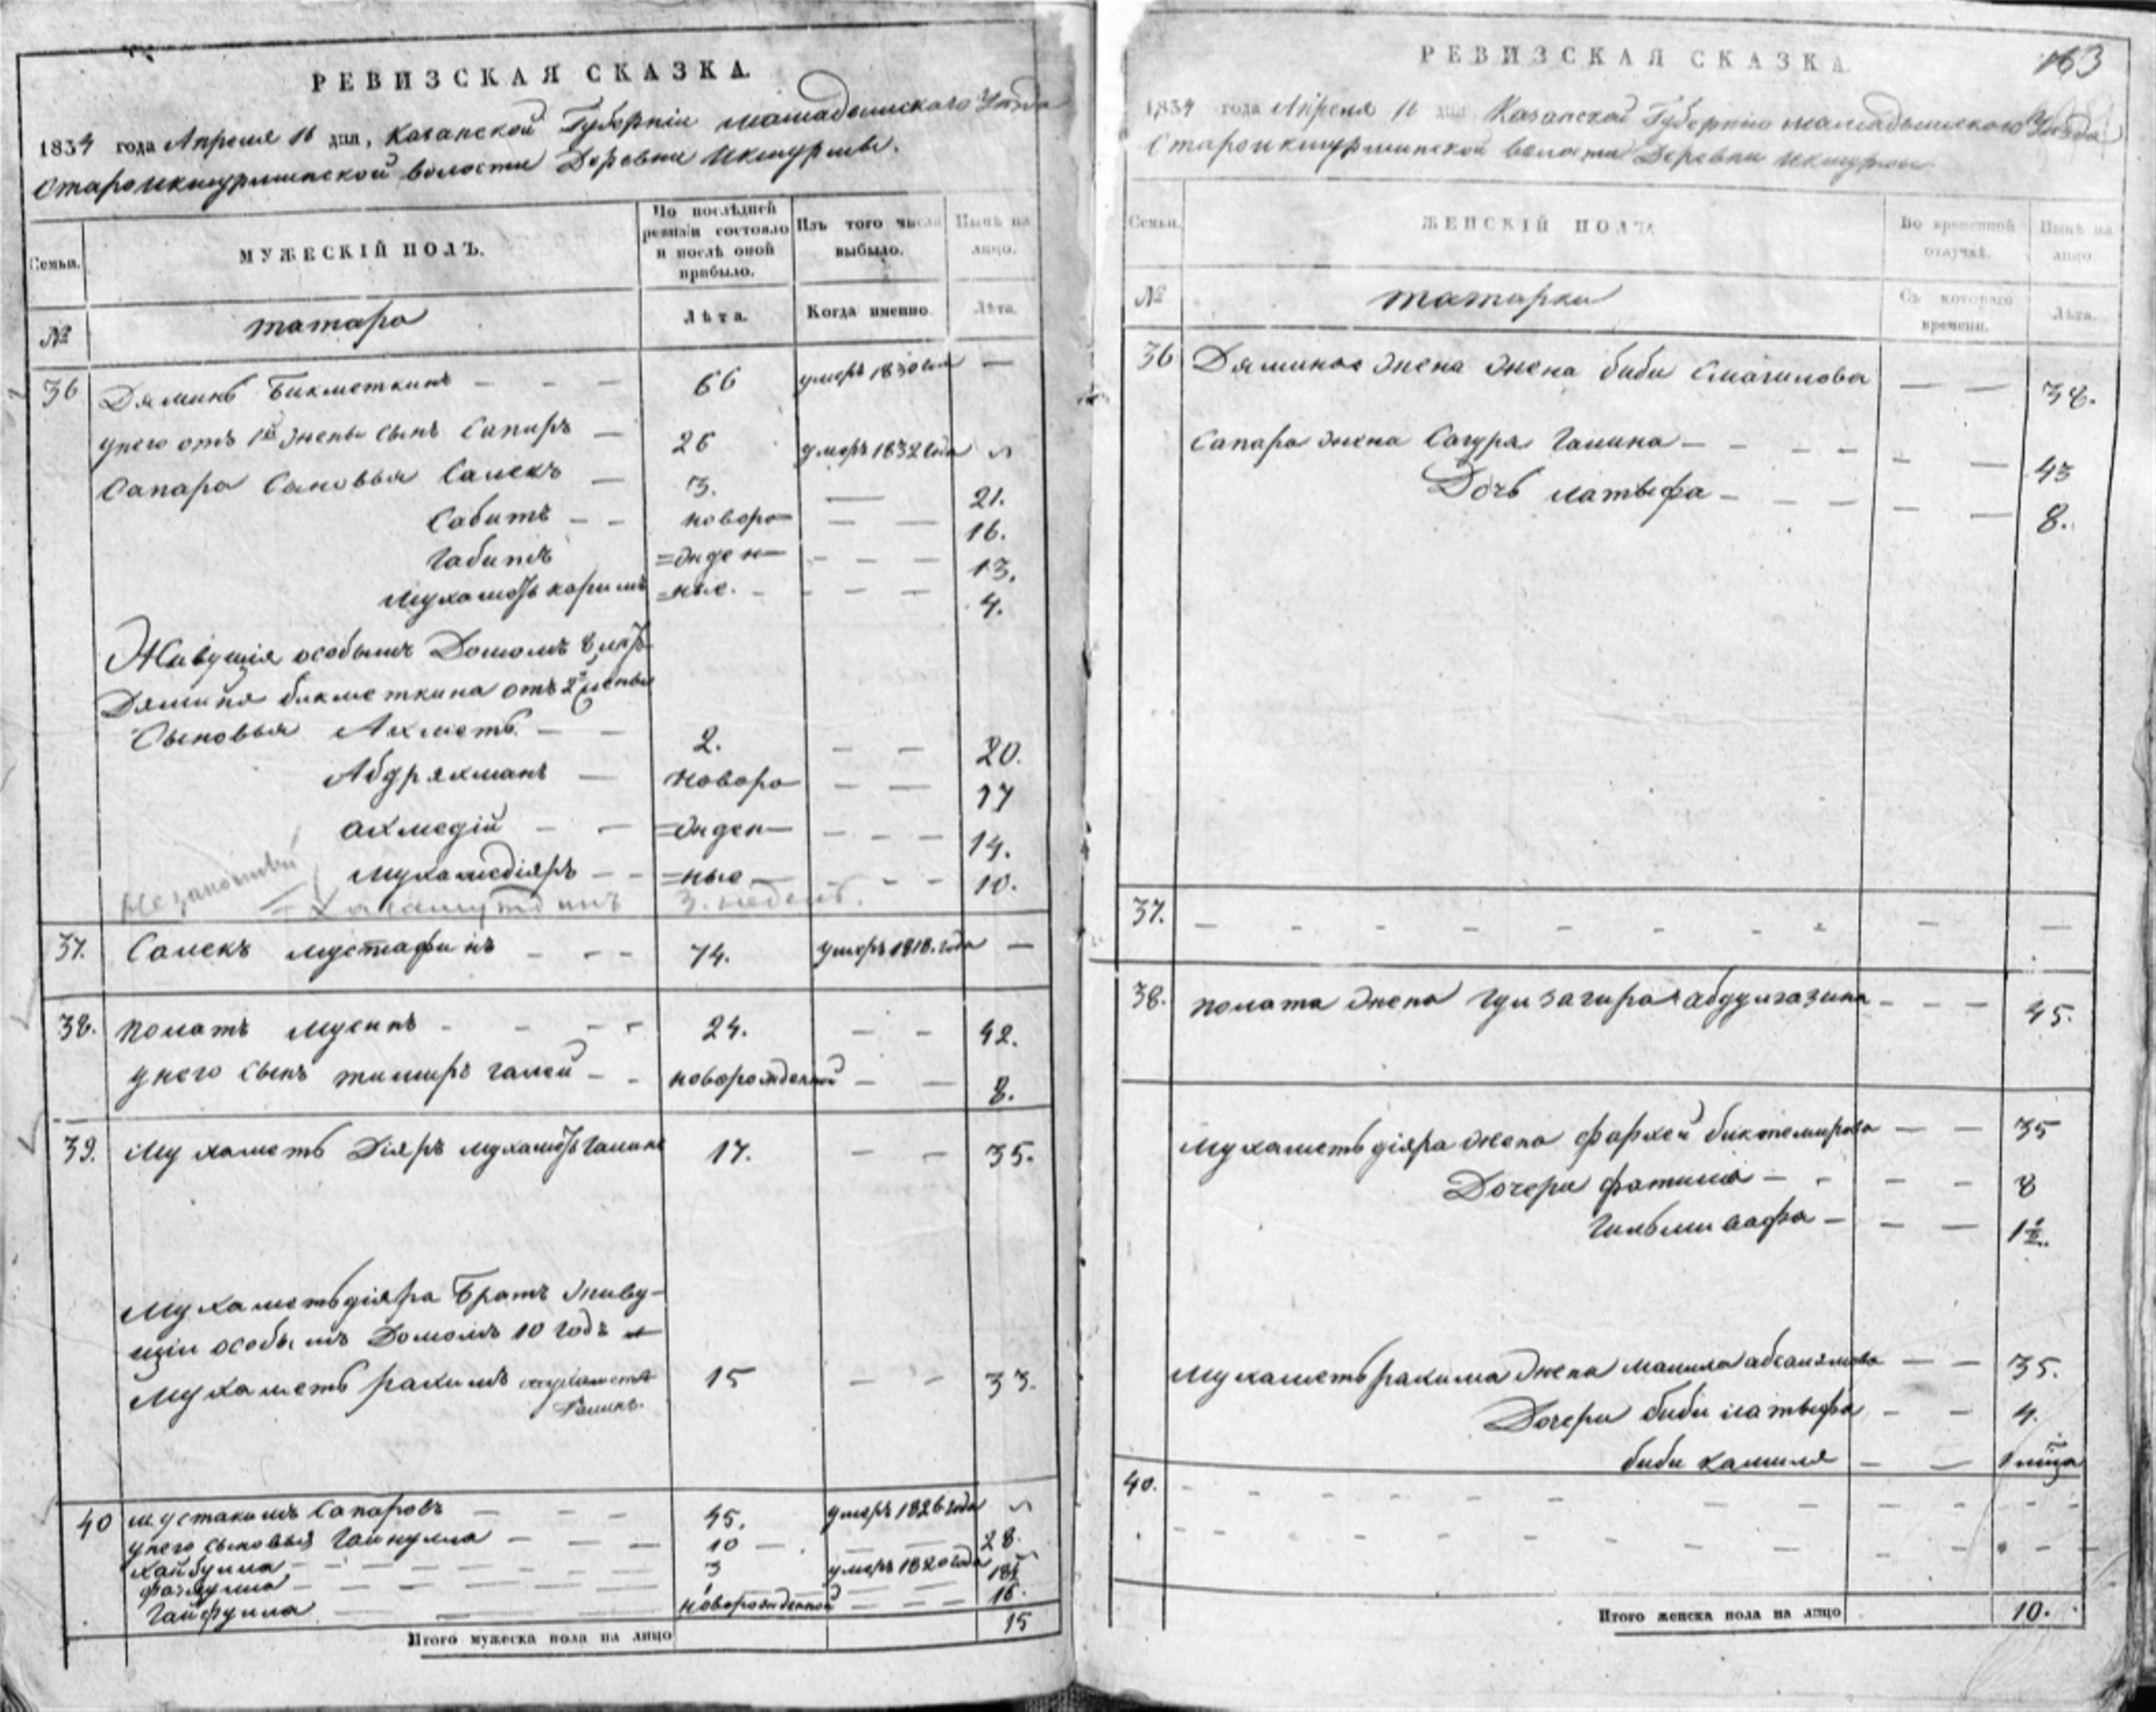 РЕВИЗСКАЯ СКАЗКА.
1834 года Апреля 16 дня, Казанской Губерніи мамадышскаго Уезда
Староикшурминской волости Деревни Икшурмы.
Семьи.
МУЖЕСКІЙ ПОЛЪ.
По послѣдней ревизіи состояло и послѣ оной прибыло.
Изъ того числа выбыло.
Нынѣ на лицо.
№
татара
Лѣта.
Когда именно.
Лѣта.
36 Дяминъ Бикметкинъ — — — 66 умеръ 1830 года —
унего отъ 1й жены сынъ Сапаръ — 26 умеръ 1832 года
Сапара Сыновья Салекъ — 3. — 21.
Сабитъ — — новоро — — 16.
Габитъ =жден — — — 13.
Мухаметь каримъ =ные. — — — 4.
Живущія особымъ Домомъ
Дяминя бикметкина отъ 2й жены
Сыновья Ахметь — — 2. — — 20.
Абдряхманъ — новоро — — 17
ахмедій — — =жден — — — 14.
Мухамедіяръ — — =ные — — — 10.
3. недель.
37. Салекъ мустафинъ — — — 74. умеръ 1818. года —
38. полатъ мусинъ — — — — 24. — — 42.
унего сынъ тимиръ галей — — новорожденной — — 8.
39. Мухаметь Діяръ мухаметь галинъ 17. — — 35.
Мухаметь діяра Братъ живу-
щіи особымъ Домомъ 10 годъ
Мухаметь рахимъ мухаметь 15 — — 33.
Галинъ.
40 мустакимъ Сапаровъ — — — 45. умеръ 1826 года
унего сыновья Гайнулла — — — 10 — — — 28.
хайбулла — — — 3 умеръ 1820 года
фазлулла — — — 18½
Гайфулла — — — новорожденной — — — 16.
Итого мужеска пола на лицо 15
РЕВИЗСКАЯ СКАЗКА.
163
1834 года Апреля 16 дня Казанской Губерніи мамадышскаго Уезда
Староикшурминской волости Деревни Икшурмы
Семьи.
ЖЕНСКІЙ ПОЛЪ.
Во временной отлучкѣ.
Нынѣ на лицо
№
татарки
Съ котораго времени.
Лѣта.
36 Дямина жена жена биби Смагилова — — 38.
Сапара жена Сагура Галина — — — — — — 43
Дочь латыфа — — — — — — 8.
37. — — — — — — — — — —
38. полата жена гулзагира абдулгазина — — — 45.
Мухаметь діяра жена фархей биктемирова — — 35
Дочери фатима — — — — 8
Гильми вафа — — — 1½.
Мухаметь рахима жена малика абсалямова — — 35.
Дочери биби латыфа — — 4.
биби камиля — —
40. — — — — — — — — — —
Итого женска пола на лицо 10.